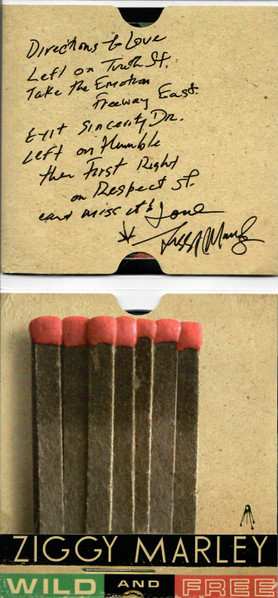 Directions to Love
Left on Truth St.
Take the Emotion
Freeway East.
Exit Sincerity Dr.
Left on Humble
then First Right
on Respect St.
cant miss it
Love
Ziggy Marley
ZIGGY MARLEY
WILD AND FREE